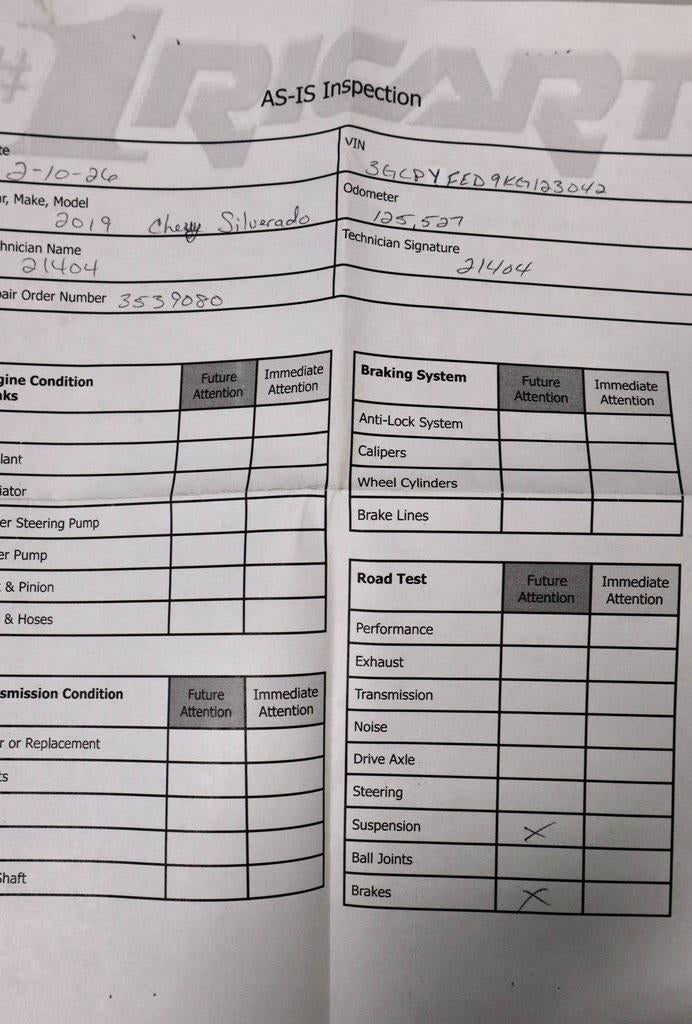 #1RICART
AS-IS Inspection
te 2-10-26
VIN 3GCPYFED9KG123042
ar, Make, Model 2019 Chevy Silverado
Odometer 125,527
hnician Name 21404
Technician Signature 21404
pair Order Number 3539080
gine Condition
aks
Future Attention
Immediate Attention
lant
iator
er Steering Pump
er Pump
& Pinion
& Hoses
smission Condition
Future Attention
Immediate Attention
r or Replacement
ts
Shaft
Braking System
Future Attention
Immediate Attention
Anti-Lock System
Calipers
Wheel Cylinders
Brake Lines
Road Test
Future Attention
Immediate Attention
Performance
Exhaust
Transmission
Noise
Drive Axle
Steering
Suspension X
Ball Joints
Brakes X